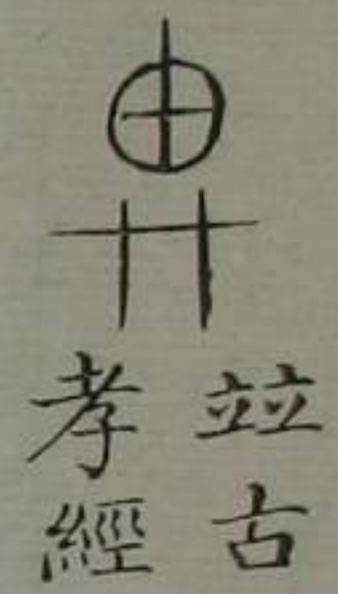 竝古
孝經